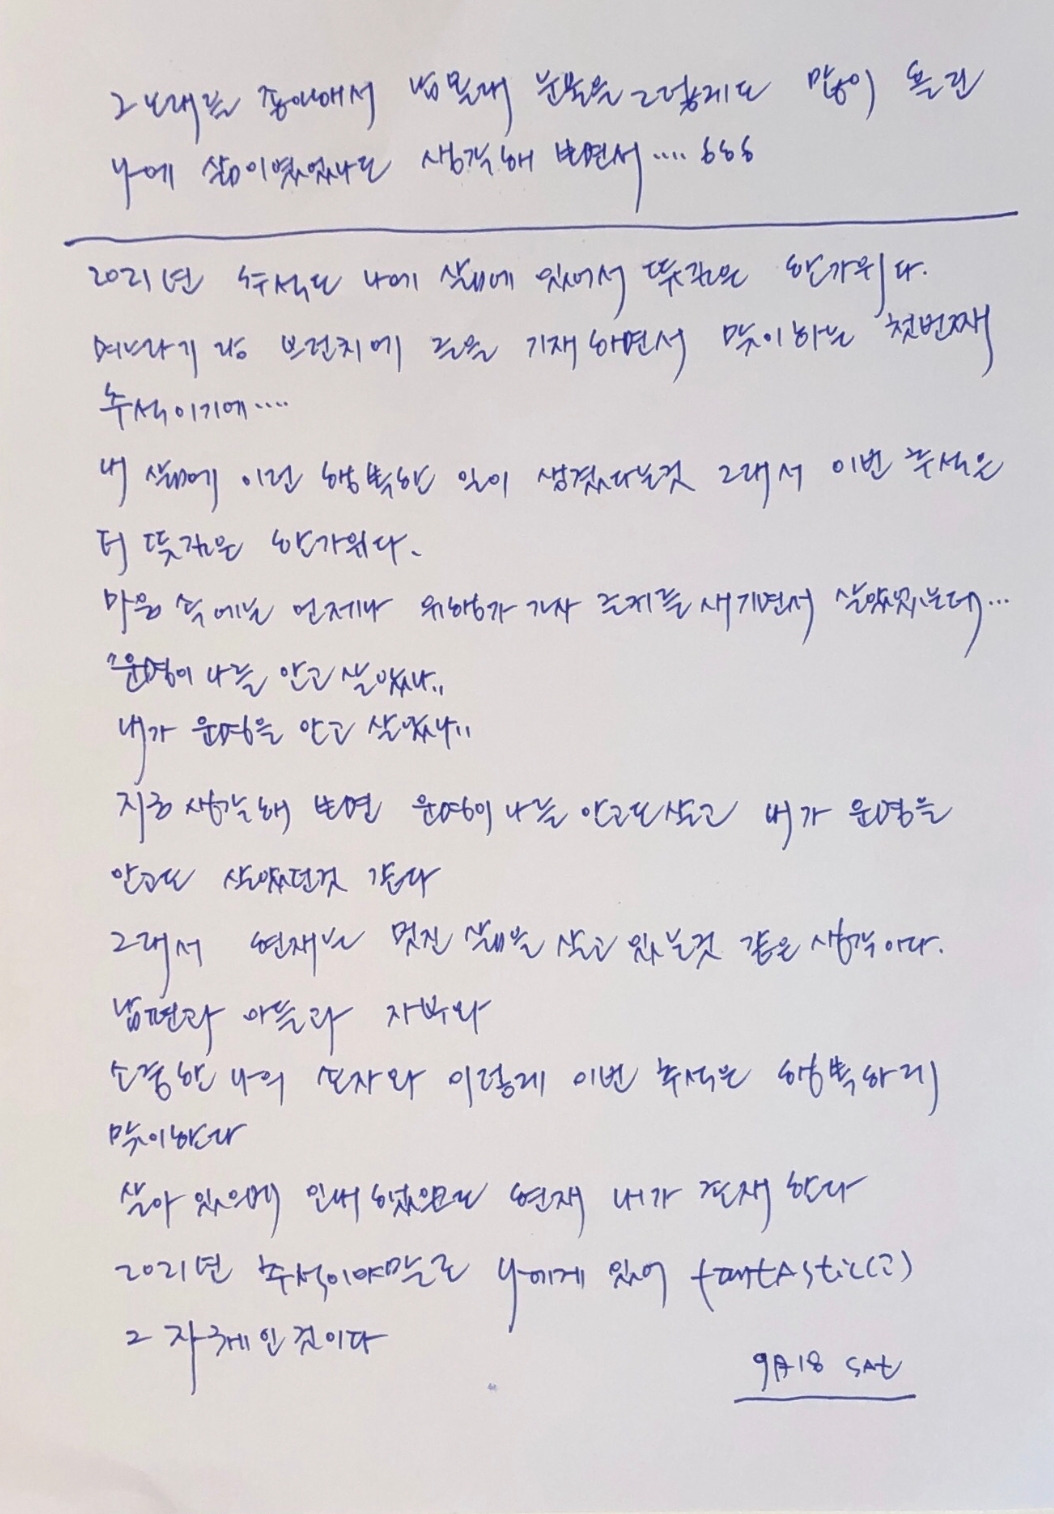 그 노래를 좋아해서 남몰래 눈물을 그렇게도 많이 흘린
나에 삶이였었나도 생각해 보면서....
2021년 추석도 나에 삶에 있어서 뜻깊은 한가위다.
며느라기랑 브런치에 글을 기재하면서 맞이하는 첫번째
추석이기에....
내 삶에 이런 행복한 일이 생겼다는것 그래서 이번 추석은
더 뜻깊은 한가위다.
마음 속에는 언제나 위행가 가사 글게를 새기면서 살았었는데...
운명이 나를 안고 살았나..
내가 운명을 안고 살았나..
지금 생각해 보면 운명이 나를 안고도살고 내가 운명을
안고도 살았던것 같다
그래서 현재는 멋진 삶을 살고 있는것 같은 생각이다.
남편과 아들과 자부와
소중한 나의 손자와 이렇게 이번 추석은 행복하리
맞이한다
살아 있음에 인내 했음으로 현재 내가 존재 한다
2021년 추석이야말로 나에게 있어 fantAstic(고)
그 자체인 것이다
9月18 SAt